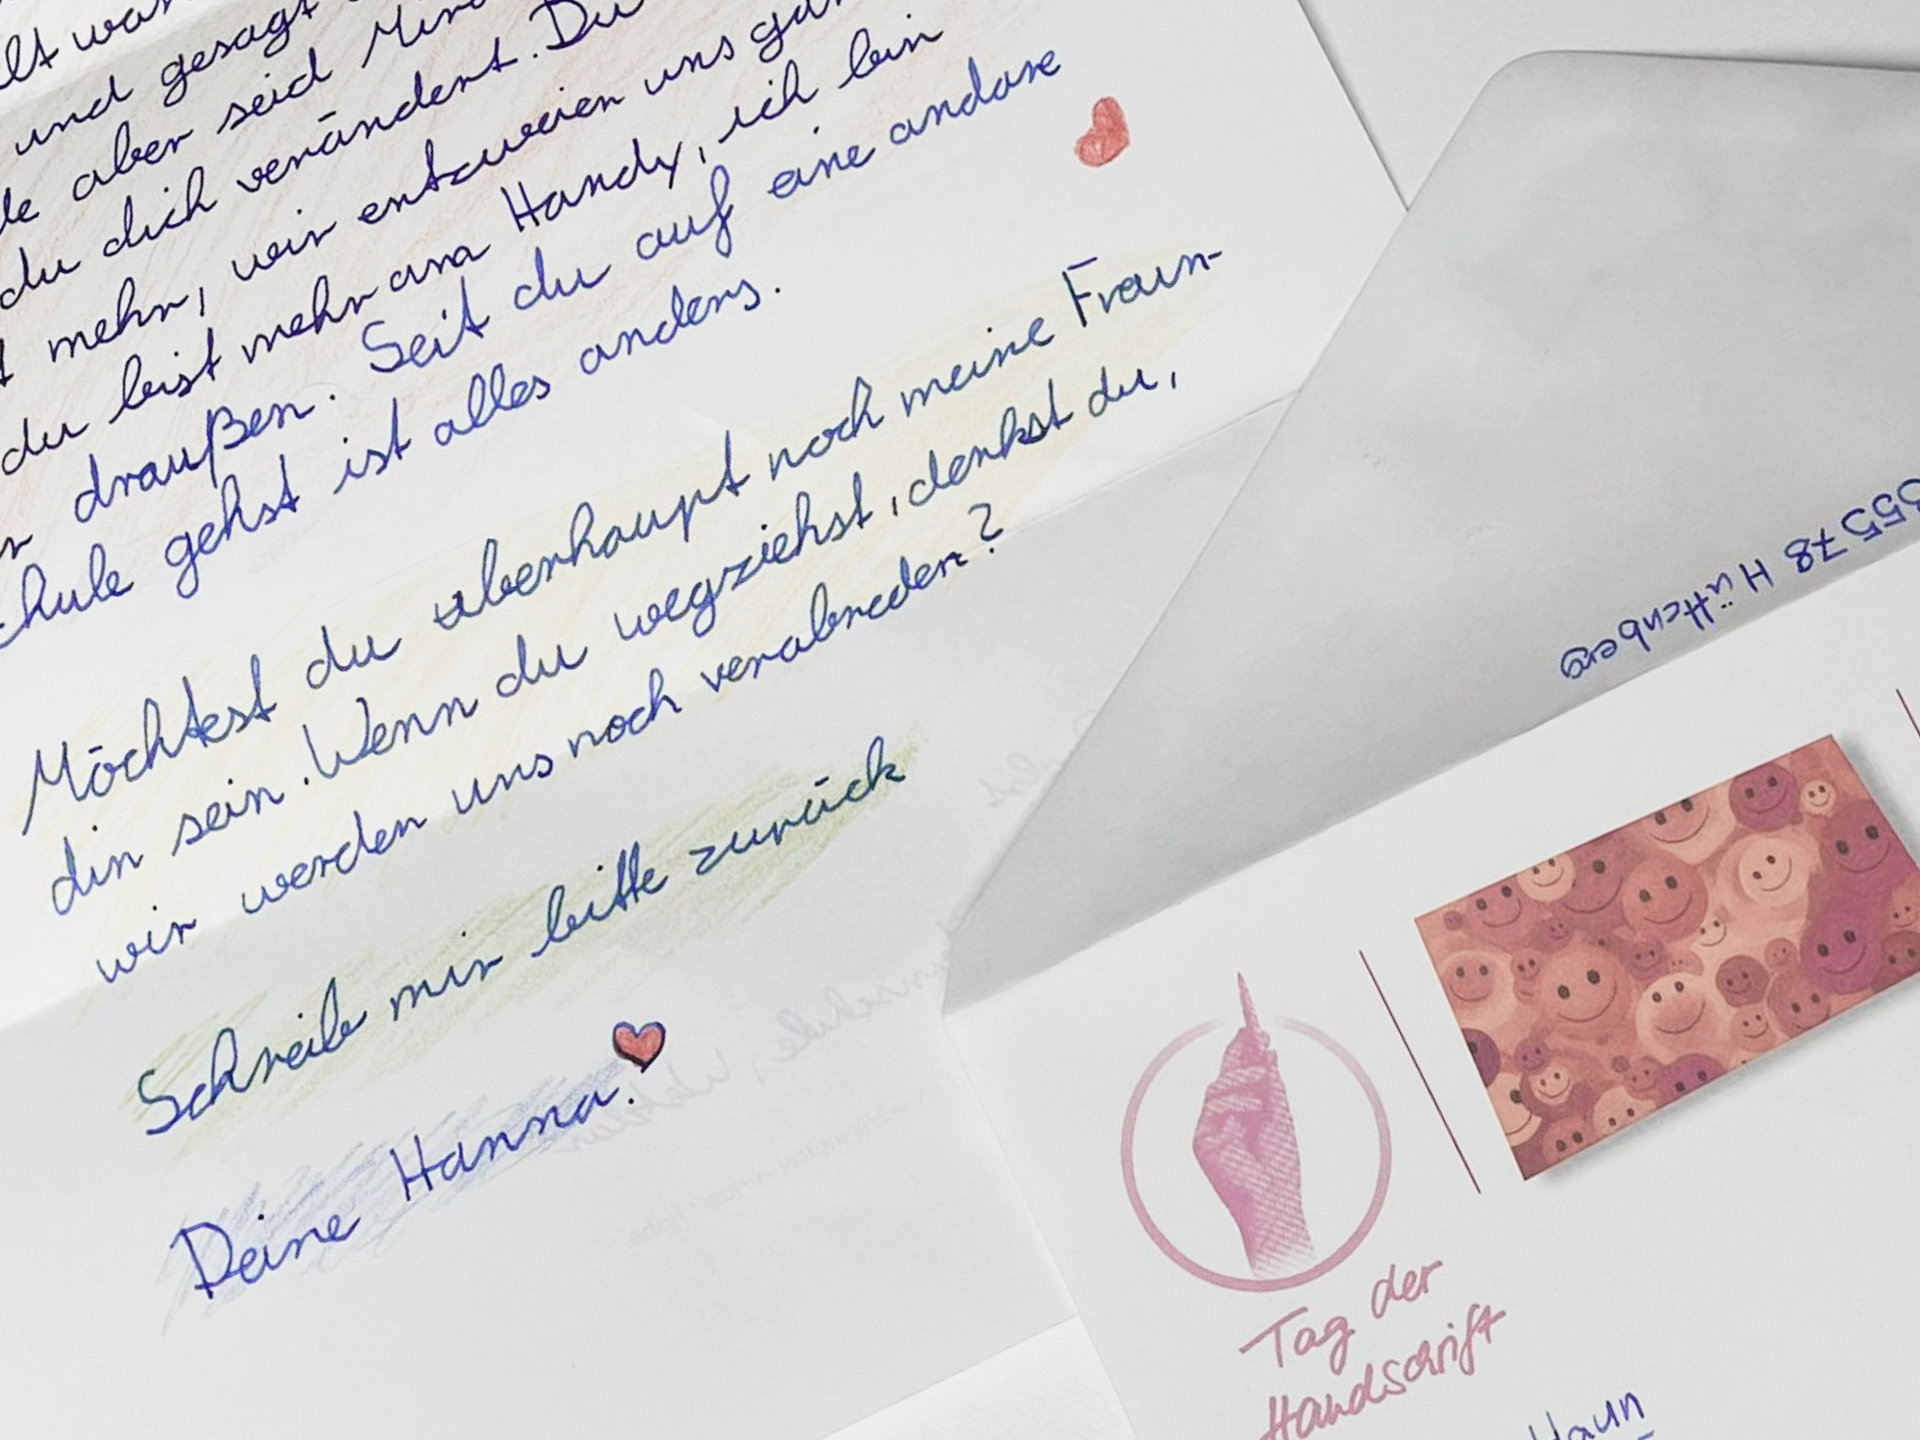 und gesagt
aber seid
du dich verändert. Du
mehr, wir entzweien uns
du bist mehr am Handy, ich bin
draußen. Seit du auf eine andare
schule gehst ist alles anders.
Möchtest du überhaupt noch meine Fraun-
din sein. Wenn du wegziehst, denkst du,
wir werden uns noch verabreden?
Schreib mir bitte zurück
Deine Hanna.
35578 Hüttenberg
Tag der
Handschrift
Haun